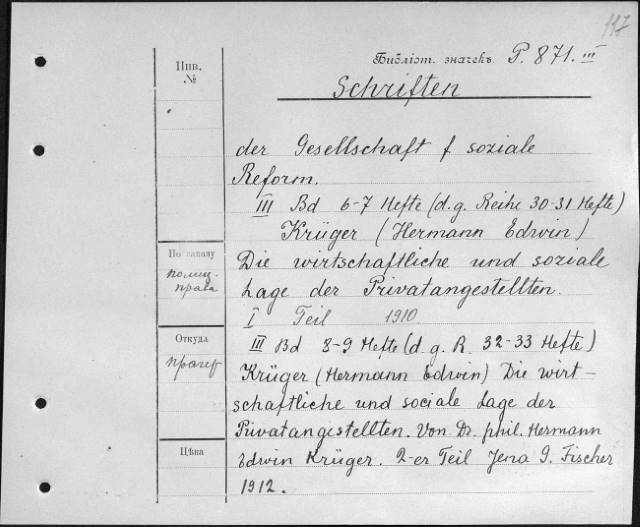 117
Инв. №
Библіот. значекъ P. 871. III
Schriften
der Gesellschaft f soziale
Reform.
III Bd 6-7 Hefte (d. g. Reihe 30-31 Hefte)
Krüger (Hermann Edwin)
По заказу
Die wirtschaftliche und soziale
Lage der Privatangestellten.
I Teil 1910
Откуда
III Bd 8-9 Hefte (d. g. R. 32-33 Hefte)
Krüger (Hermann Edwin) Die wirt-
schaftliche und sociale Lage der
Privatangestellten. Von Dr. phil. Hermann
Цѣна
Edwin Krüger. 2-er Teil Jena G. Fischer
1912.